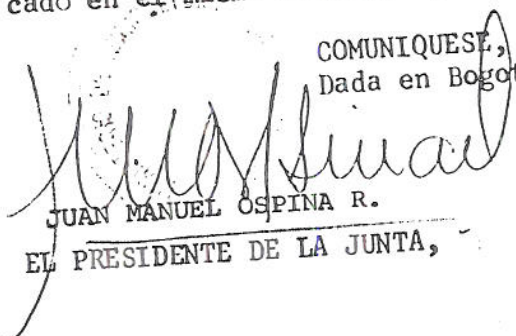 cado en el
COMUNIQUESE,
Dada en Bogot
JUAN MANUEL OSPINA R.
EL PRESIDENTE DE LA JUNTA,